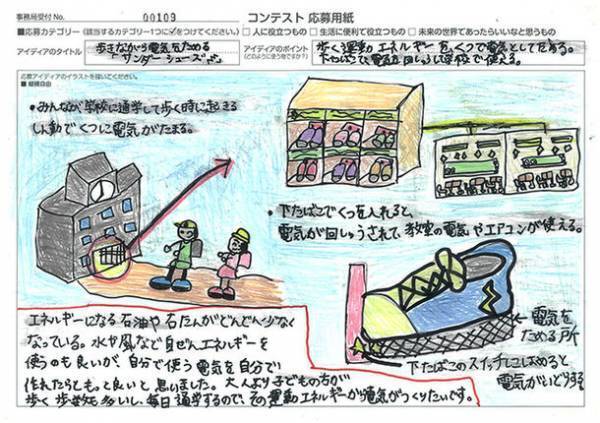 事務局受付 No. 00109 コンテスト 応募用紙
■応募カテゴリー(該当するカテゴリー1つに✓をつけてください。) □人に役立つもの □生活に便利で役立つもの □未来の世界であったらいいなと思うもの
アイディアのタイトル
歩きながら電気をためる
サンダーシューズ
アイディアのポイント
(どのように使うですか?)
歩く運動エネルギーをくつで電気としてためる。
下たばこで電気を回しゅうし学校で使える。
応募アイディアのイラストを描いてください。
■縦横自由
・みんなが学校に通学して歩く時に起きる
しん動でくつに電気がたまる。
・下たばこでくつを入れると、
電気が回しゅうされて、教室の電気やエアコンが使える。
←電気を
ためる戸所
下たばこのスイッチにはめると
電気がいどうする
エネルギーになる石油や石たんがどんどん少なく
なっている。水や風など自ぜんエネルギーを
使うのも良いが、自分で使う電気を自分で
作れたらもっと良いと思いました。大人より子どもの方が
歩く歩数も多いし、毎日通学するので、その運動エネルギーから電気がつくりたいです。